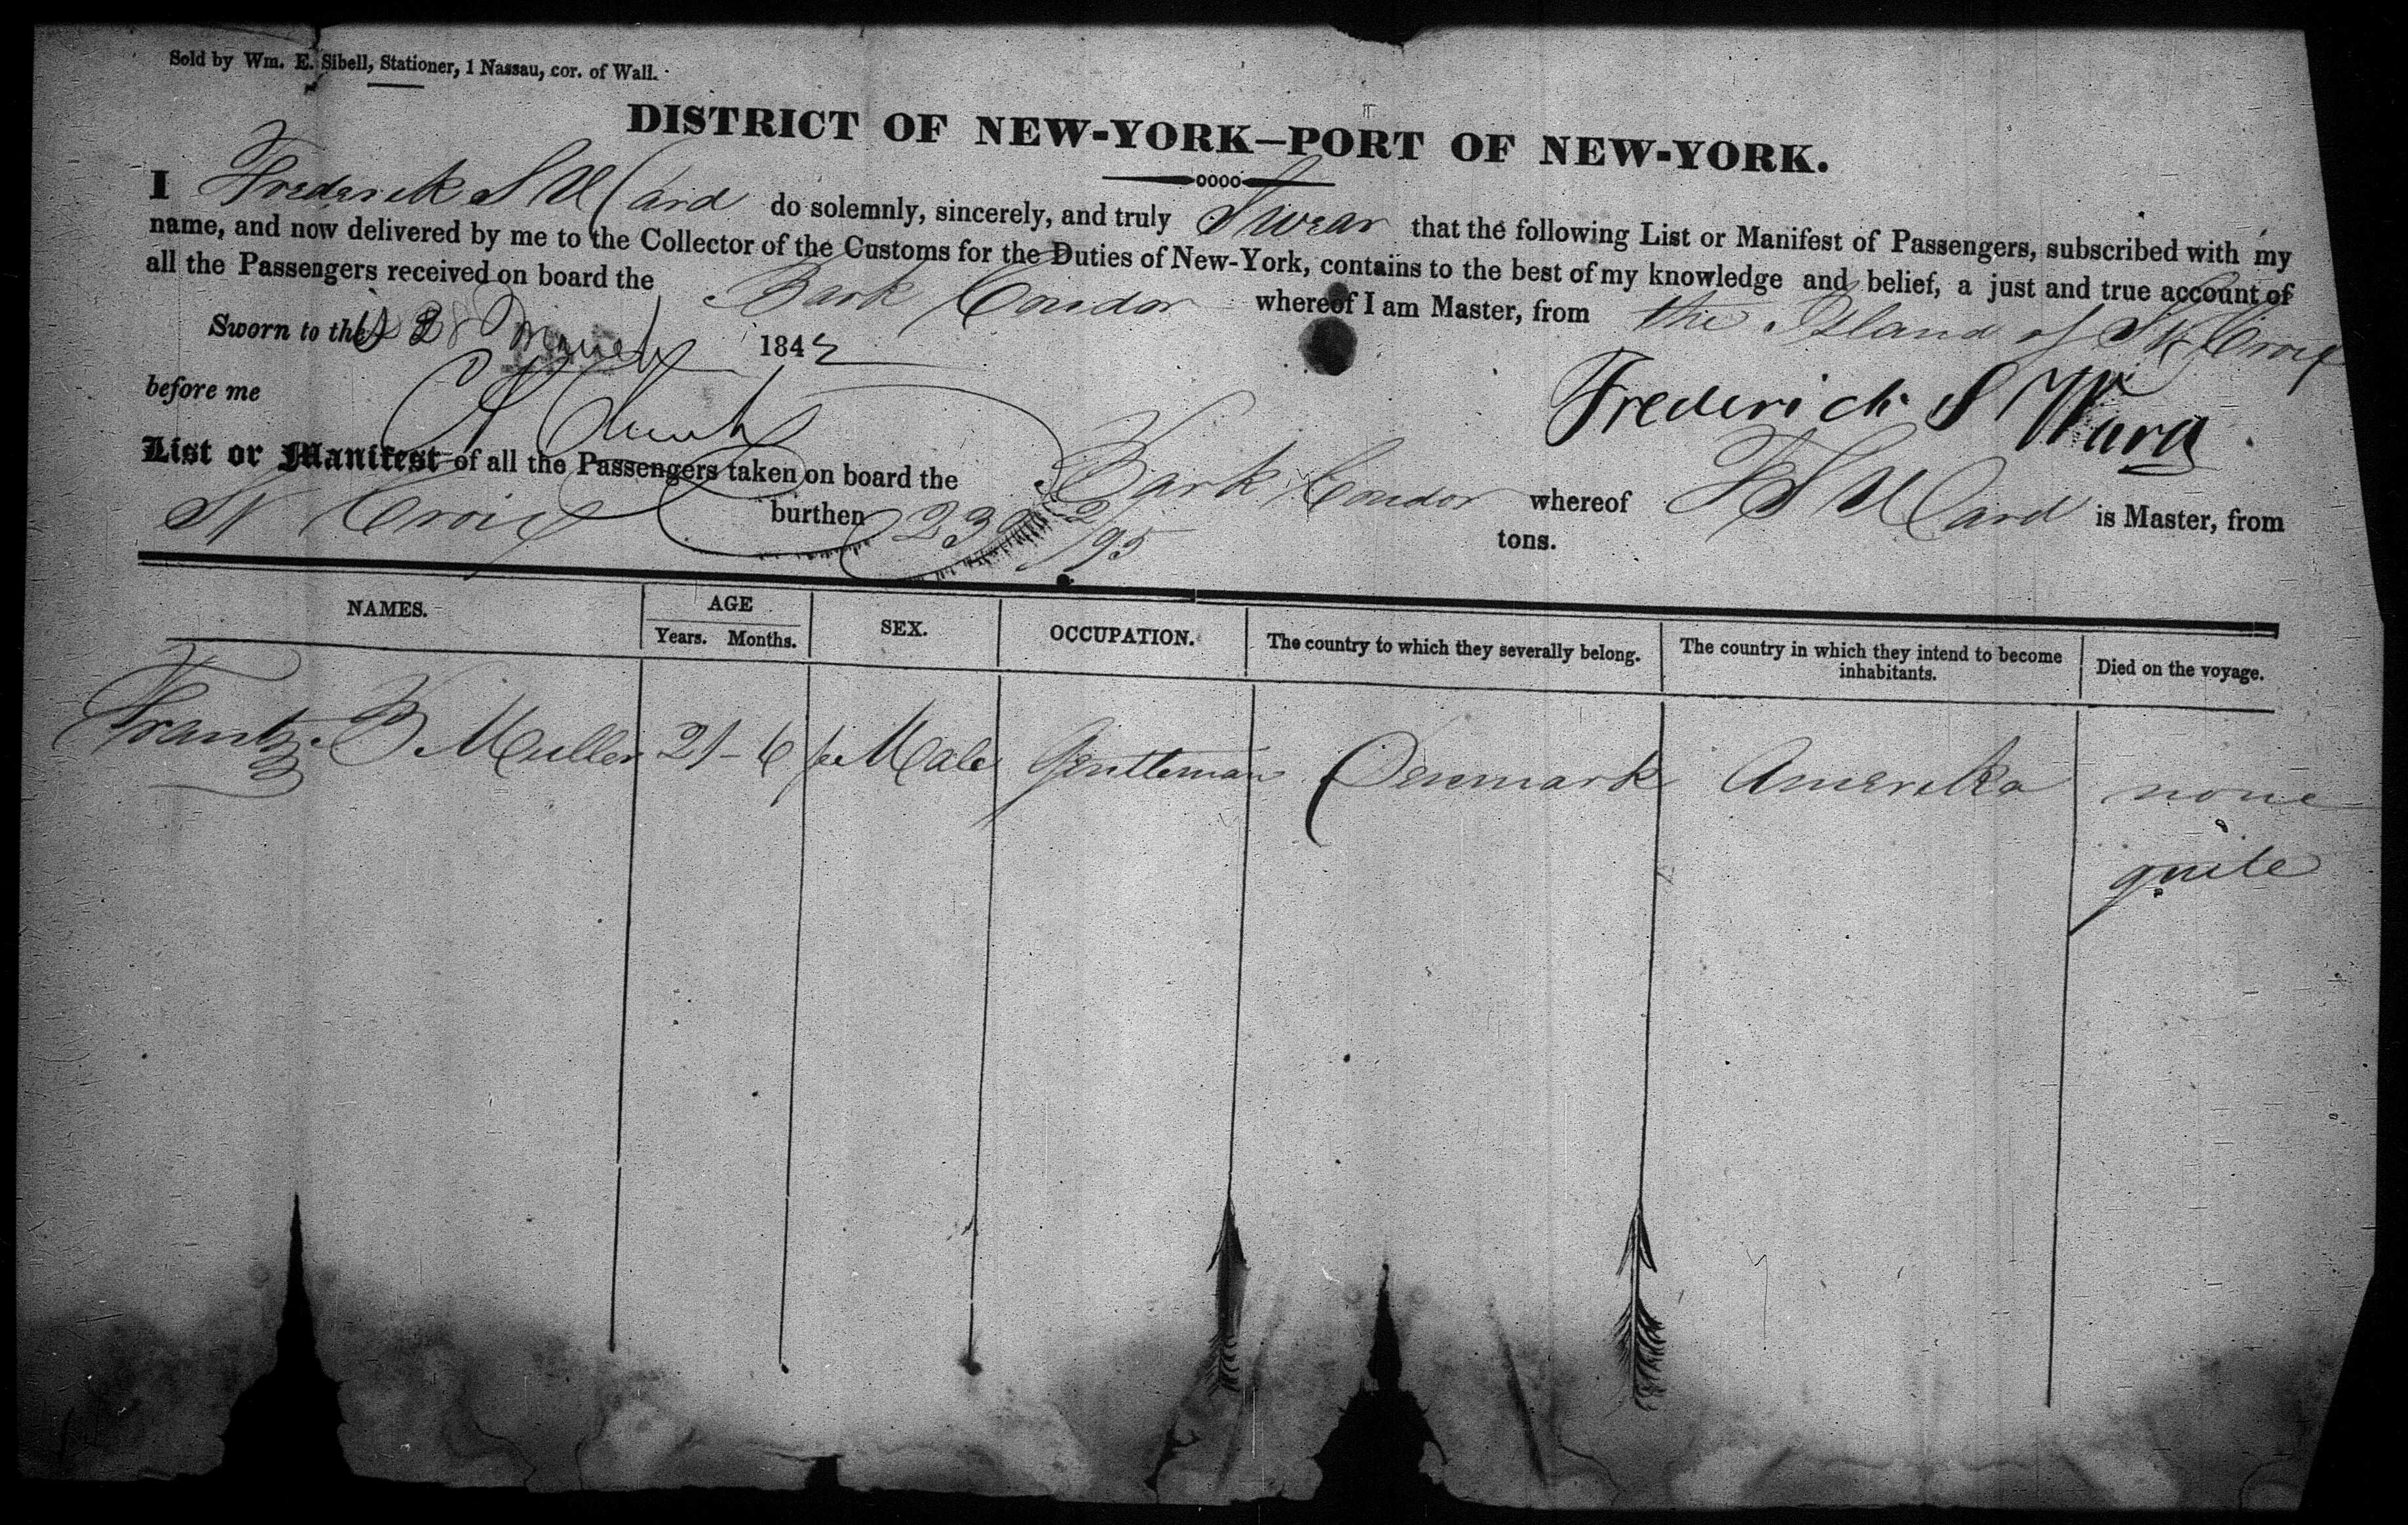 Sold by Wm. E. Sibell, Stationer, 1 Nassau, cor. of Wall.
DISTRICT OF NEW-YORK—PORT OF NEW-YORK.
I Frederick S Ward do solemnly, sincerely, and truly Swear that the following List or Manifest of Passengers, subscribed with my
name, and now delivered by me to the Collector of the Customs for the Duties of New-York, contains to the best of my knowledge and belief, a just and true account of
all the Passengers received on board the Bark Condor whereof I am Master, from the Island of St Croix
Sworn to the 28 March 1842
before me
Frederick S Ward
List or Manifest of all the Passengers taken on board the Bark Condor whereof F S Ward is Master, from
St Croix burthen 2/95 tons.
NAMES. AGE SEX. OCCUPATION. The country to which they severally belong. The country in which they intend to become inhabitants. Died on the voyage.
Years. Months.
Frantz B Muller 21 - 6 Male Gentleman Denmark Amerika none
quite